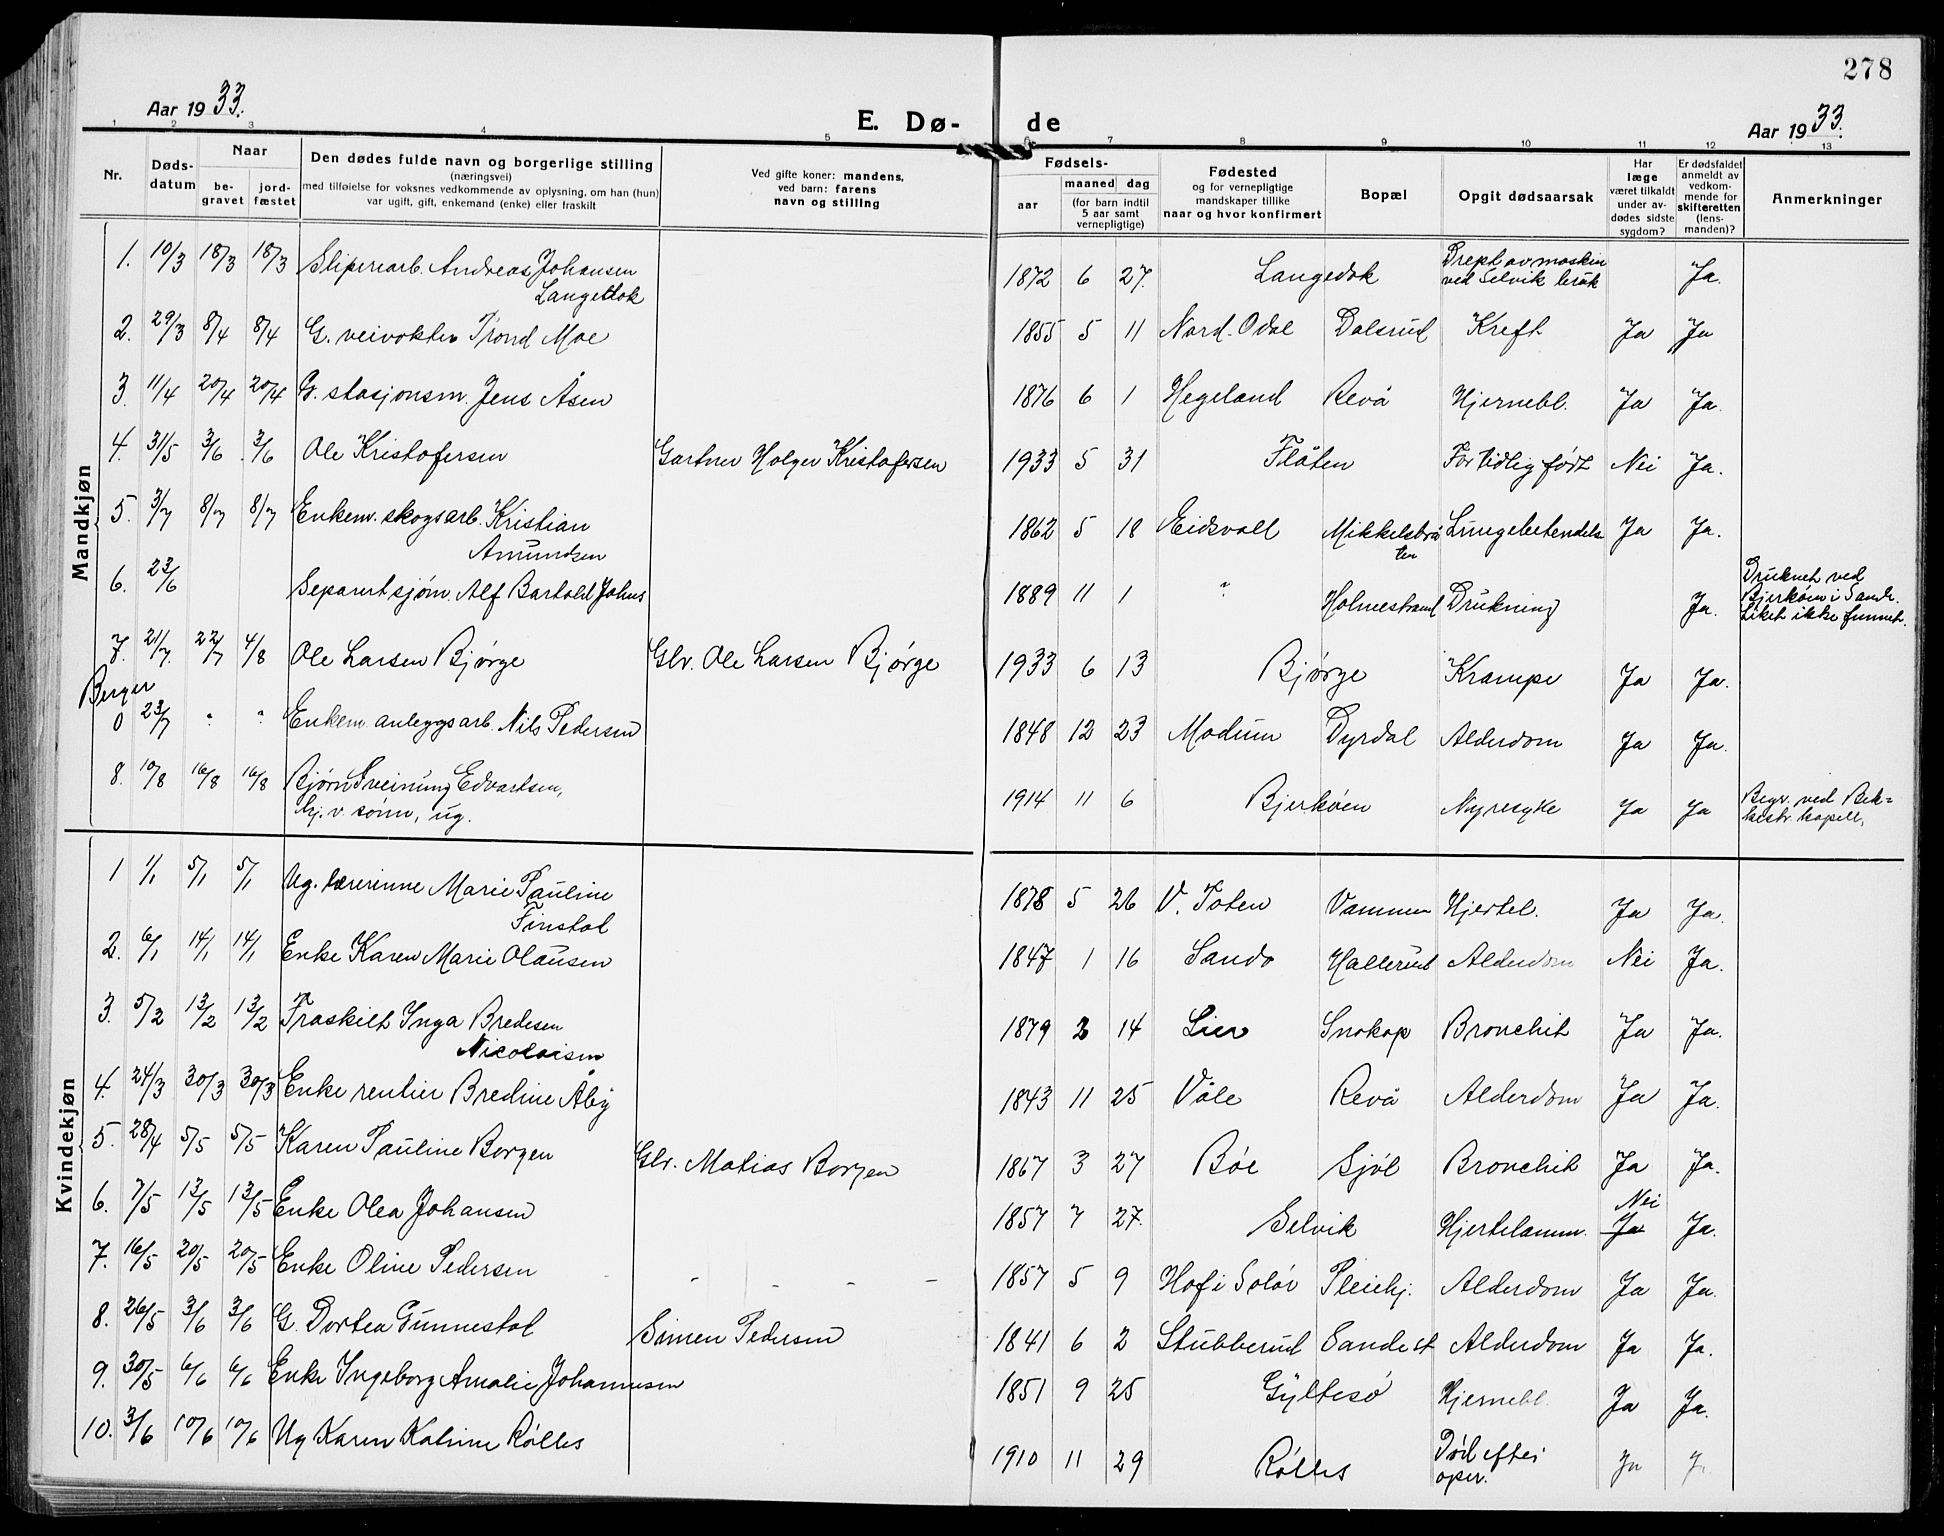 278
Aar 1933.
E. Dø-de
Aar 1933.
1 2 3 4 5 6 7 8 9 10 11 12 13
Nr. | Døds-datum | Naar be-gravet | jord-fæstet | Den dødes fulde navn og borgerlige stilling (næringsvei) med tilføielse for voksnes vedkommende av oplysning, om han (hun) var ugift, gift, enkemand (enke) eller fraskilt | Ved gifte koner: mandens, ved barn: farens navn og stilling | Fødsels- aar | maaned | dag (for barn indtil 5 aar samt vernepligtige) | Fødested og for vernepligtige mandskaper tillike naar og hvor konfirmert | Bopæl | Opgit dødsaarsak | Har læge været tilkaldt under av-dødes sidste sygdom? | Er dødsfaldet anmeldt av vedkom-mende for skifteretten (lens-manden)? | Anmerkninger
Mandkjøn
1. 10/3 18/3 18/3 Sliperiarb. Andreas Johansen Langedok 1872 6 27. Langedok Drept av maskin ved Selvik bruk Ja.
2. 29/3 8/4 8/4 G. veivokter Trond Moe 1855 5 11 Nord-Odal Dalsrud Kreft Ja Ja
3. 11/4 20/4 20/4 G. stasjonsm. Jens Åsen 1876 6 1 Hegeland Revå Hjernebl. Ja Ja.
4. 31/5 3/6 3/6 Ole Kristofersen Gartner Holger Kristofersen 1933 5 31 Flåten For tidlig født Nei Ja.
5. 3/7 8/7 8/7 Enkem. skogsarb. Kristian Amundsen 1862 5 18 Eidsvoll Mikkelsbråten Lungebetendels Ja Ja.
6. 23/6 Separert sjøm. Alf Bartold Johns 1889 11 1 " Holmestrand Drukning Ja. Druknet ved Bjerkøen i Sande. Liket ikke funnet.
7. 21/7. 22/7 4/8 Ole Larsen Bjørge Gbr. Ole Larsen Bjørge 1933 6 13 Bjørge Krampe Ja Ja.
Berger
0 23/7 " " Enkem. anleggsarb. Nils Pedersen 1848 12 23 Modum Dyrdal Alderdom Ja Ja.
8. 10/8 16/8 16/8 Bjørn Sveinung Edvartsen, hj. v. sønn, ug. 1914 11 6 Bjerkøen Nyresyke Ja Ja Begr. ved Bek=kestr. kapell,
Kvindekjøn
1 1/1 5/1 5/1 Ug. lærerinne Marie Pauline Finstal 1878 5 26 V. Toten Vammen Hjertel. Ja Ja.
2. 6/1 14/1 14/1 Enke Karen Marie Olausen 1847 1 16 Sande Hallerud Alderdom Nei Ja.
3. 5/2 13/2 13/2 Fraskilt Inga Bredesen Nicolaisen 1879 2 14 Lier Snekop Bronchit Ja Ja.
4. 24/3 30/3 30/3 Enke rentier Bredine Åby 1843 11 25 Våle Revå Alderdom Ja Ja.
5. 28/4 5/5 5/5 Karen Pauline Borgen Gbr. Matias Borgen 1867 3 27 Bøe Sjøl Bronchit Ja Ja.
6. 7/5 13/5 13/5 Enke Olea Johansen 1857 7 27. Selvik Hjertelamm. Nei Ja Ja.
7. 16/5 20/5 20/5 Enke Oline Pedersen - - - - 1857 5 9 Hof i Solør Pleiehj. Alderdom Ja Ja.
8. 26/5 3/6 3/6 G. Dortea Gunnestal Simen Pedersen 1841 6 2 Stubberud Sande st Alderdom Ja Ja.
9. 30/5 6/6 6/6 Enke Ingeborg Amalie Johannesen 1851 9 25 Gyltesø Hjernebl. Ja Ja.
10. 3/6 10/6 10/6 Ug Karen Katrine Rølles 1910 11 29 Rølles Død efter oper. Ja J.